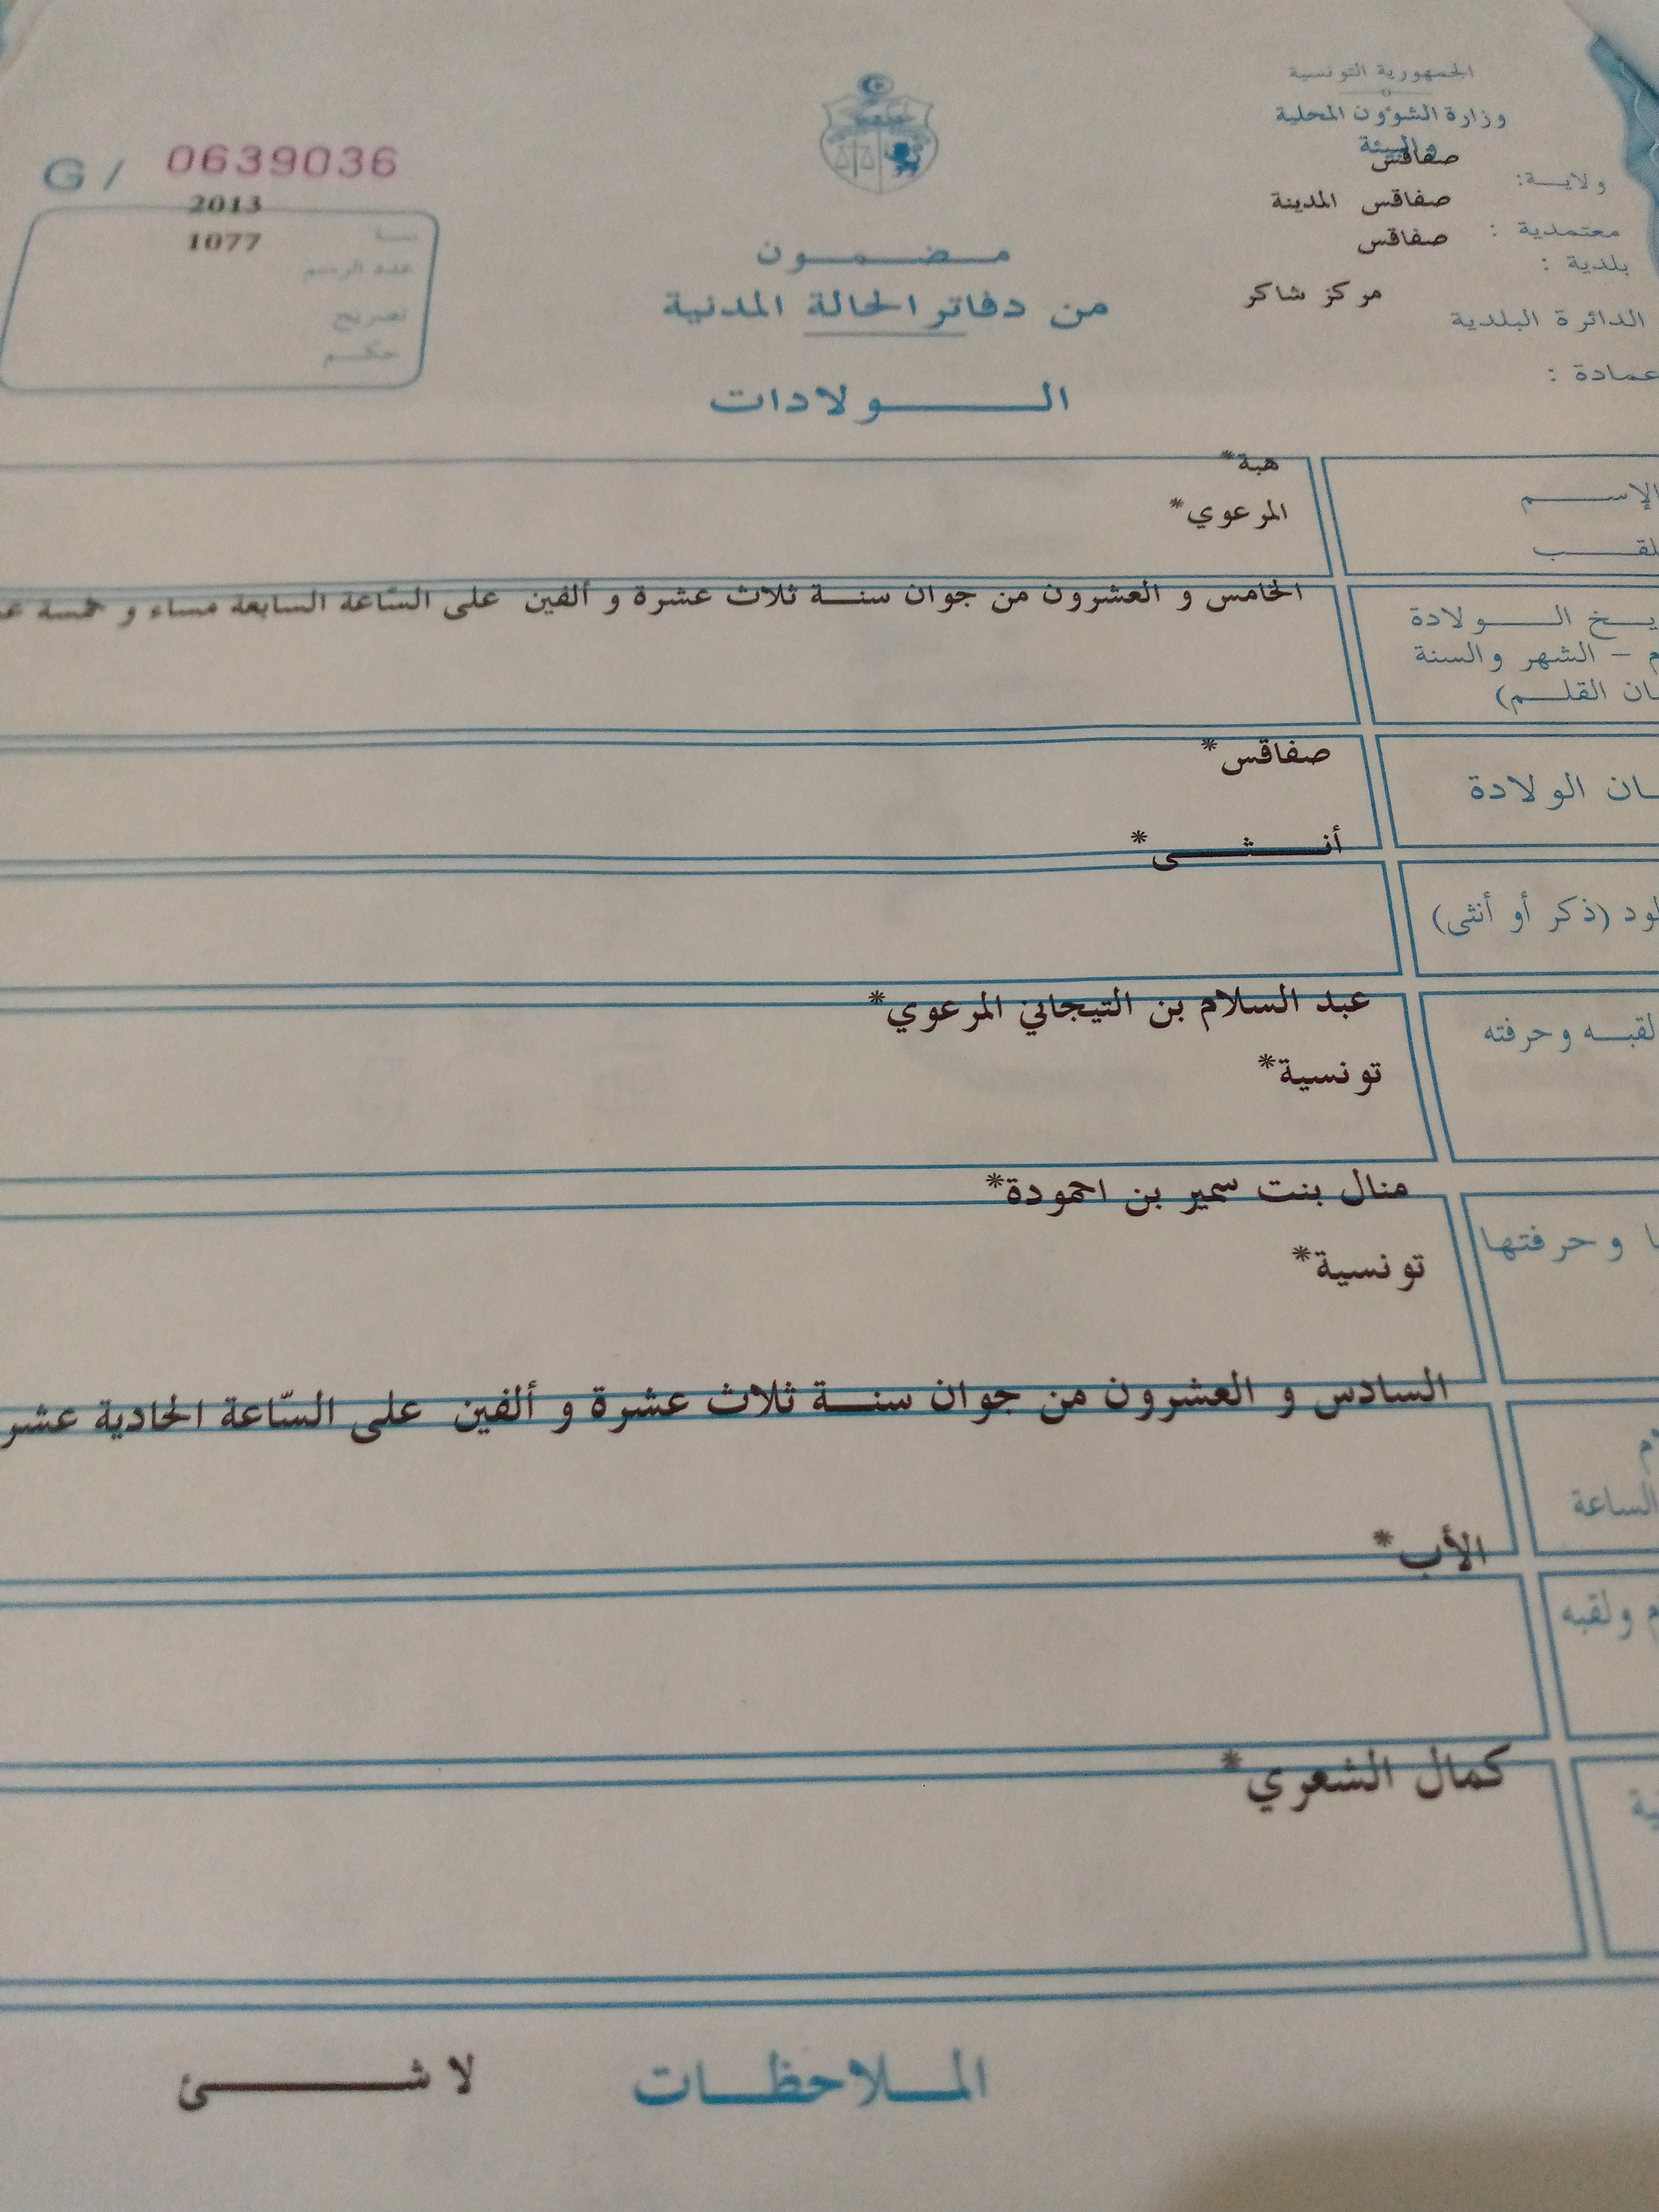 الجمهورية التونسية
وزارة الشؤون المحلية
والبيئة
ولاية: صفاقس
معتمدية: صفاقس المدينة
بلدية: صفاقس
الدائرة البلدية مركز شاكر
عمادة:
G / 0639036
سنة 2013
عدد الرسم 1077
تصريح
حكم
مضمون
من دفاتر الحالة المدنية
الولادات
الإسم هبة*
لقب المرعوي*
الخامس و العشرون من جوان سنة ثلاث عشرة و ألفين على السّاعة السابعة مساء و خمسة
يخ الولادة
م - الشهر والسنة
ان القلم)
ان الولادة صفاقس*
أنثى*
لود (ذكر أو أنثى)
عبد السلام بن التيجاني المرعوي*
لقبه وحرفته
تونسية*
منال بنت سمير بن احمودة*
ا وحرفتها
تونسية*
السادس و العشرون من جوان سنة ثلاث عشرة و ألفين على السّاعة الحادية عشر
م
الساعة
الأب*
م ولقبه
كمال الشعري*
ية
الملاحظات لا شئ